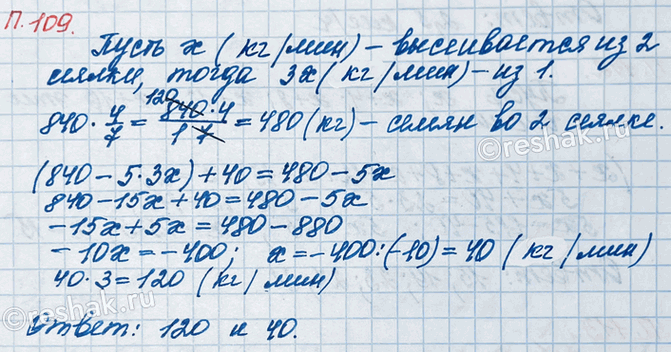 П. 109.
Пусть x (кг/мин) – высеивается из 2
сеялки, тогда 3x (кг/мин) – из 1.
840 · 4/7 = 840·4/1 7 = 480 (кг) – семян во 2 сеялке.
120
(840 – 5·3x) + 40 = 480 – 5x
840 – 15x + 40 = 480 – 5x
–15x + 5x = 480 – 880
–10x = –400; x = –400:(–10) = 40 (кг/мин)
40·3 = 120 (кг/мин)
Ответ: 120 и 40.
reshak.ru